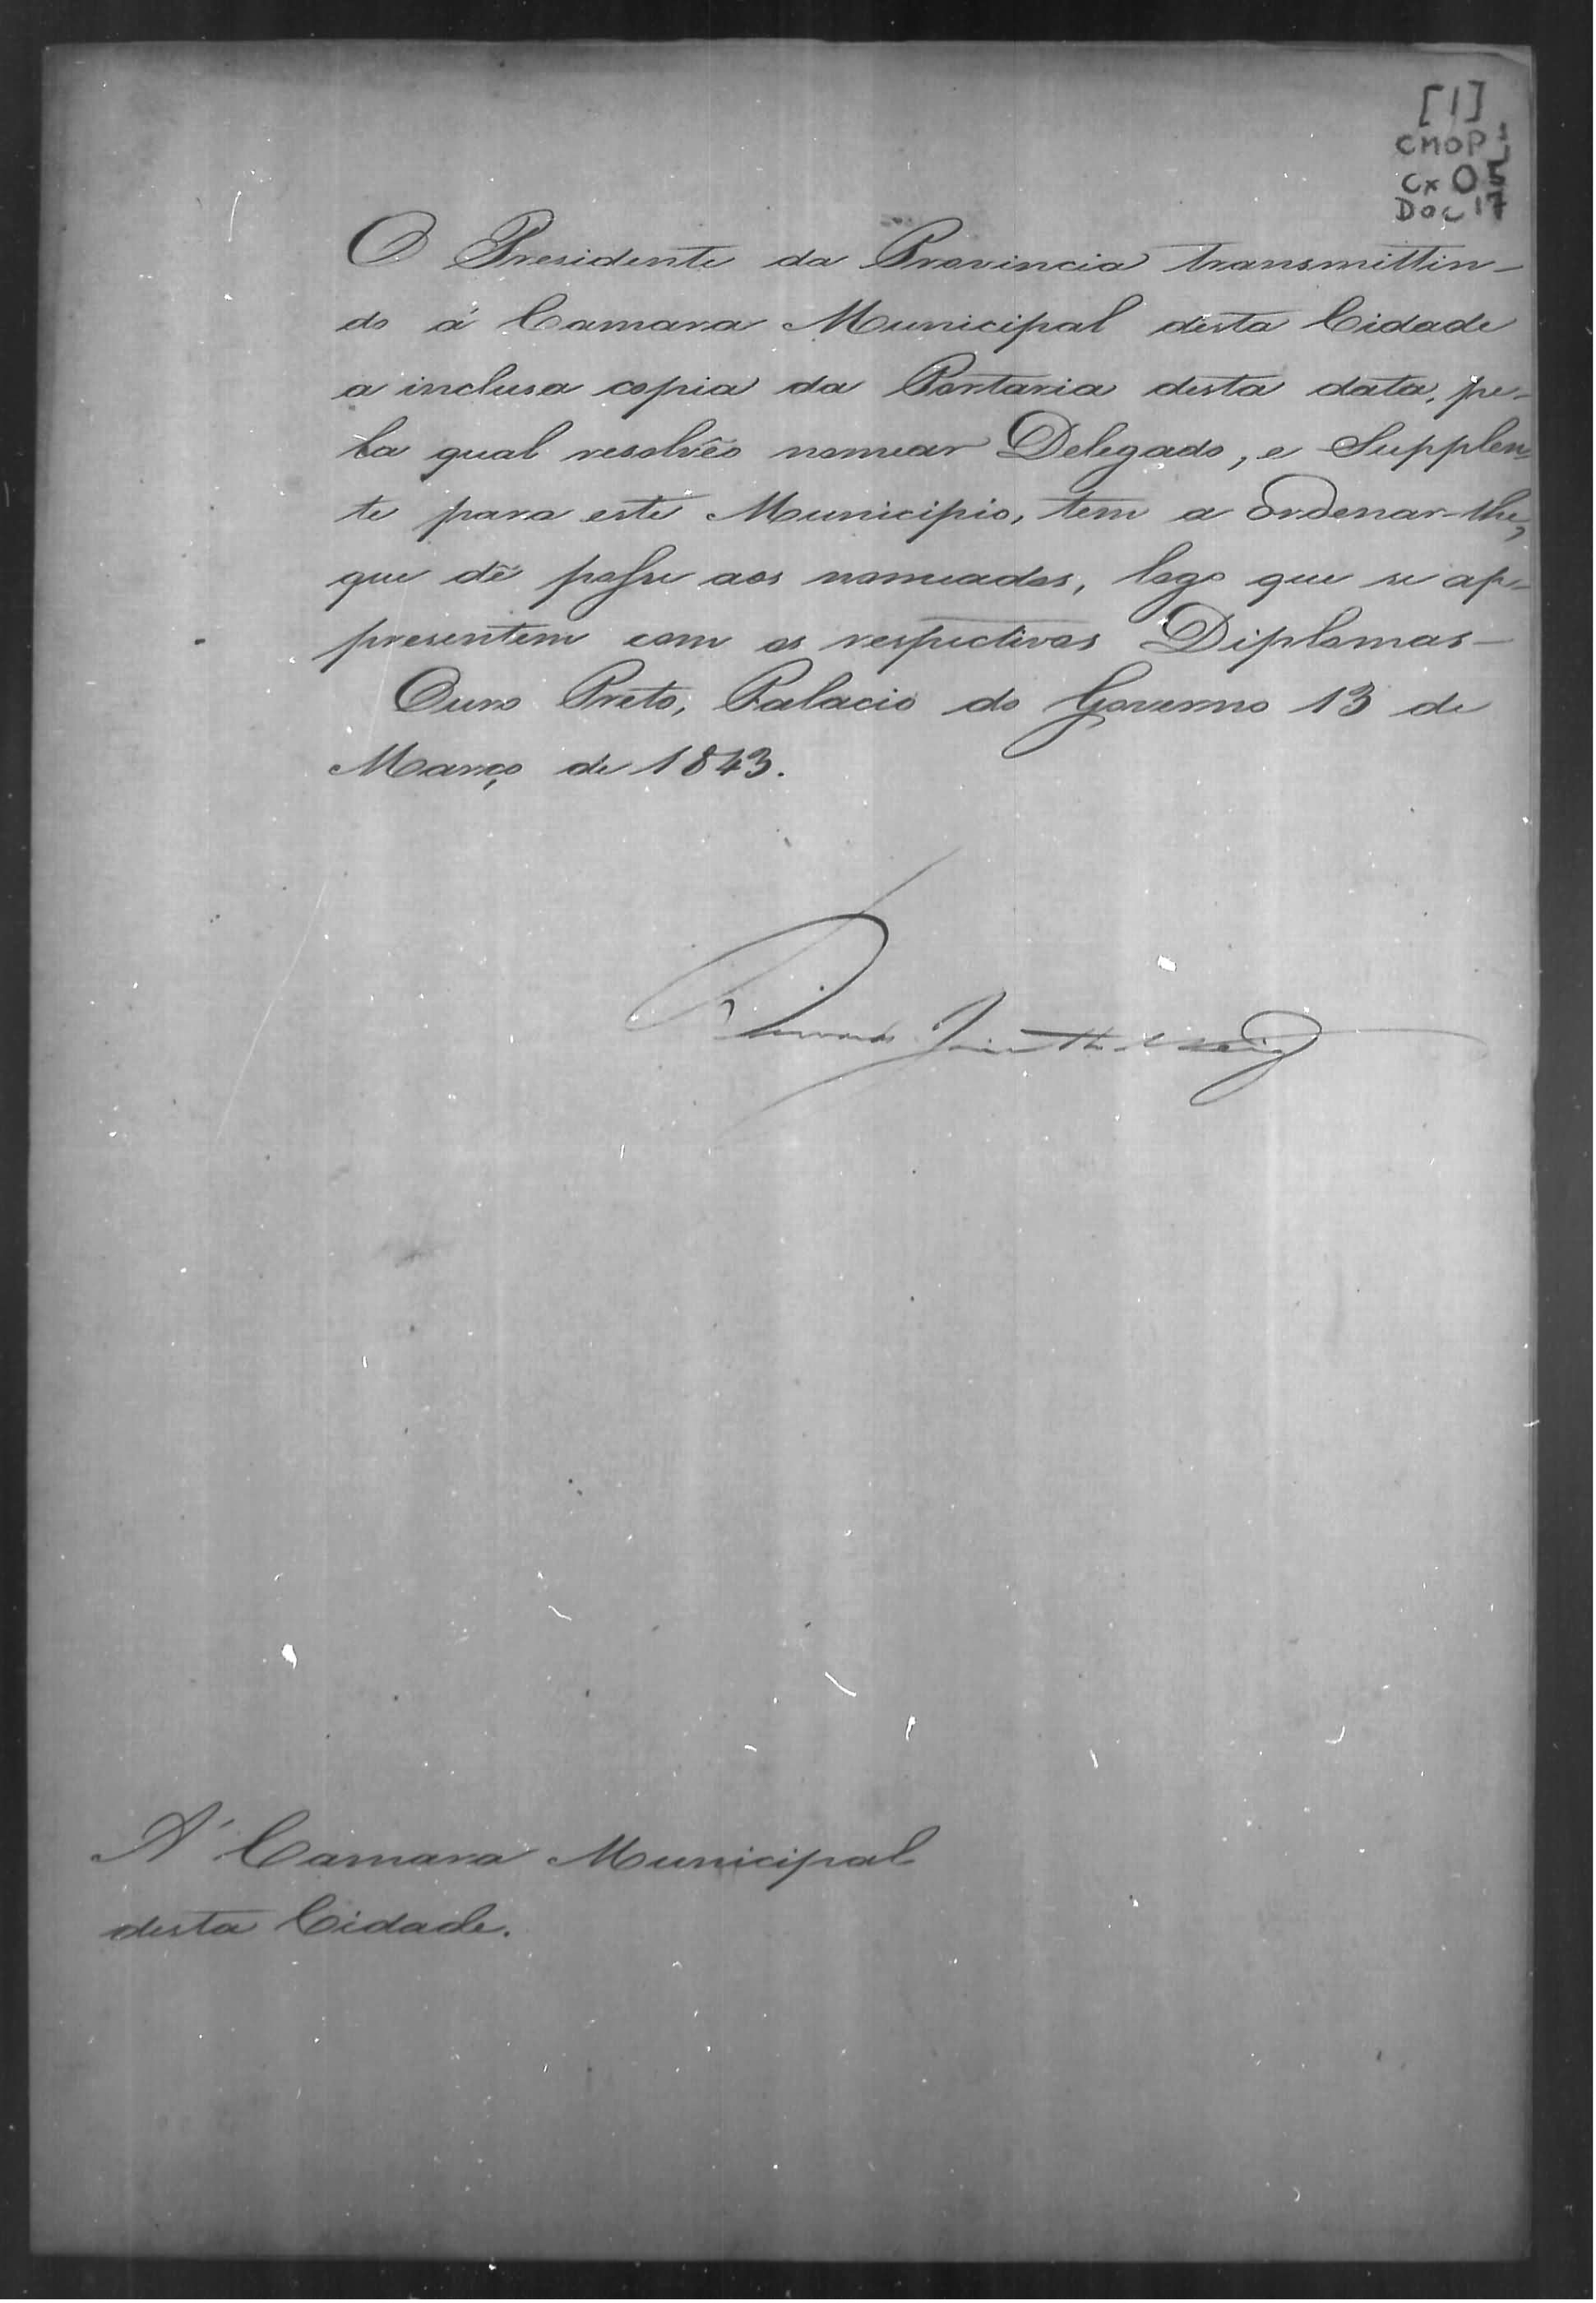 [1]
CMOP
Cx 05
Doc 17
O Presidente da Provincia transmittin-
do á Camara Municipal desta Cidade
a inclusa copia da Portaria desta data, pe-
la qual resolvêo nomear Delegado, e Supplen-
te para este Municipio, tem a ordenar-lhe,
que dê posse aos nomeados, logo que se ap-
presentem com os respectivos Diplomas
Ouro Preto, Palacio do Governo 13 de
Março de 1843.
Á Camara Municipal
desta Cidade.